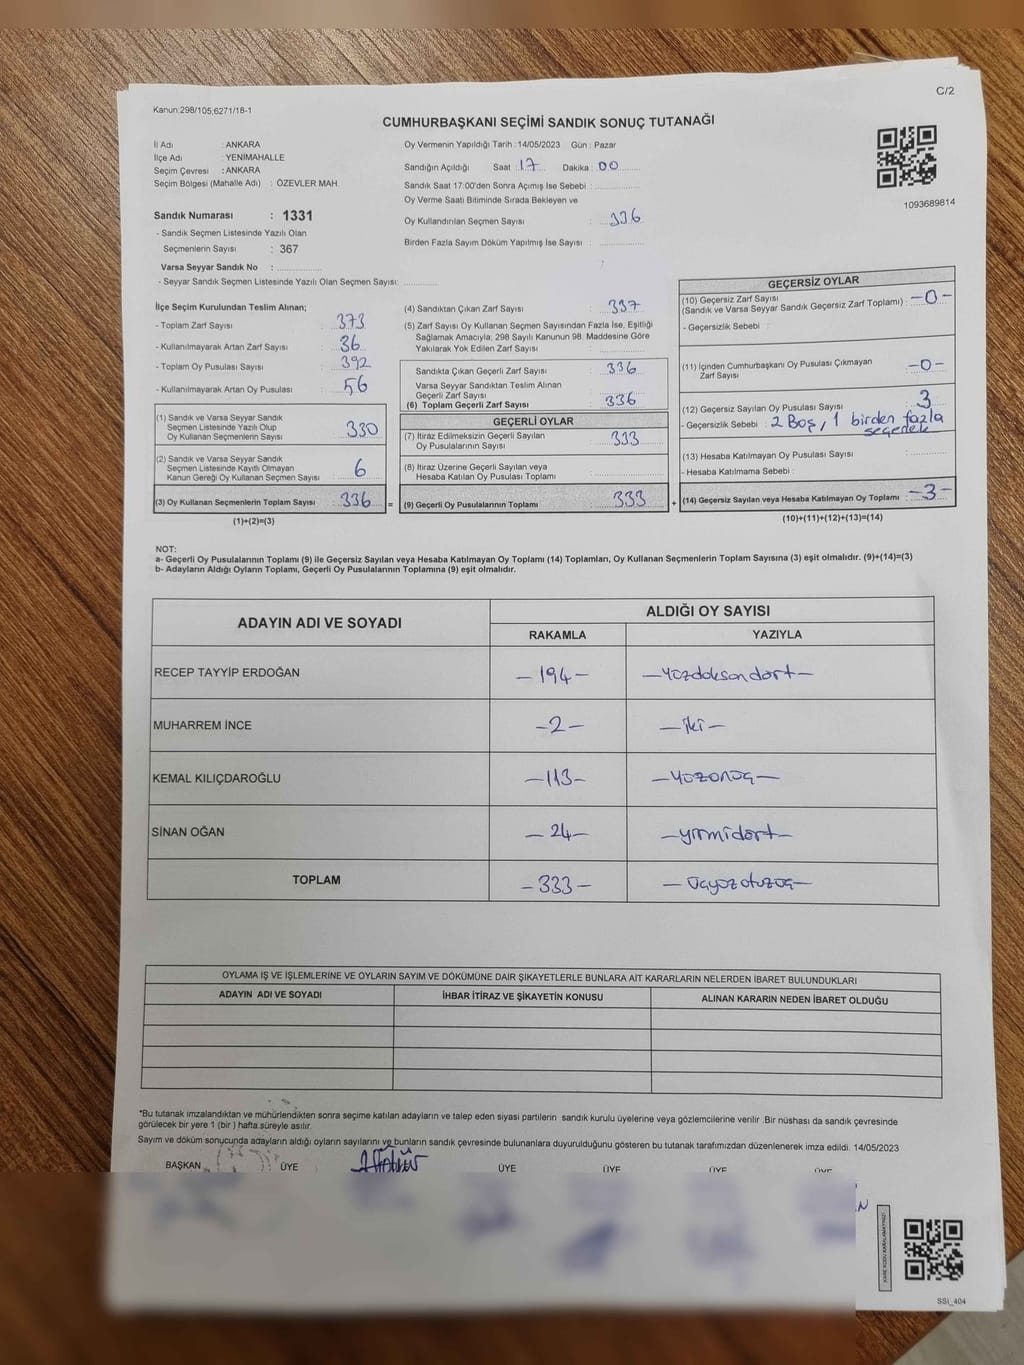 Kanun:298/105;6271/18-1
C/2
CUMHURBAŞKANI SEÇİMİ SANDIK SONUÇ TUTANAĞI
İl Adı : ANKARA
İlçe Adı : YENİMAHALLE
Seçim Çevresi : ANKARA
Seçim Bölgesi (Mahalle Adı) : ÖZEVLER MAH.
Sandık Numarası : 1331
- Sandık Seçmen Listesinde Yazılı Olan
Seçmenlerin Sayısı : 367
Varsa Seyyar Sandık No :
- Seyyar Sandık Seçmen Listesinde Yazılı Olan Seçmen Sayısı:
Oy Vermenin Yapıldığı Tarih : 14/05/2023 Gün : Pazar
Sandığın Açıldığı Saat : 17 Dakika : 00
Sandık Saat 17:00'den Sonra Açımış İse Sebebi :
Oy Verme Saati Bitiminde Sırada Bekleyen ve
Oy Kullandırılan Seçmen Sayısı : 336
Birden Fazla Sayım Döküm Yapılmış İse Sayısı :
1093689814
İlçe Seçim Kurulundan Teslim Alınan;
- Toplam Zarf Sayısı : 373
- Kullanılmayarak Artan Zarf Sayısı : 36
- Toplam Oy Pusulası Sayısı : 392
- Kullanılmayarak Artan Oy Pusulası : 56
(1) Sandık ve Varsa Seyyar Sandık
Seçmen Listesinde Yazılı Olup
Oy Kullanan Seçmenlerin Sayısı : 330
(2) Sandık ve Varsa Seyyar Sandık
Seçmen Listesinde Kayıtlı Olmayan
Kanun Gereği Oy Kullanan Seçmen Sayısı : 6
(3) Oy Kullanan Seçmenlerin Toplam Sayısı : 336 =
(1)+(2)=(3)
(4) Sandıktan Çıkan Zarf Sayısı : 337
(5) Zarf Sayısı Oy Kullanan Seçmen Sayısından Fazla İse, Eşitliği
Sağlamak Amacıyla; 298 Sayılı Kanunun 98. Maddesine Göre
Yakılarak Yok Edilen Zarf Sayısı :
Sandıkta Çıkan Geçerli Zarf Sayısı : 336
Varsa Seyyar Sandıktan Teslim Alınan
Geçerli Zarf Sayısı
(6) Toplam Geçerli Zarf Sayısı : 336
GEÇERLİ OYLAR
(7) İtiraz Edilmeksizin Geçerli Sayılan
Oy Pusulalarının Sayısı : 333
(8) İtiraz Üzerine Geçerli Sayılan veya
Hesaba Katılan Oy Pusulası Toplamı
(9) Geçerli Oy Pusulalarının Toplamı : 333 +
GEÇERSİZ OYLAR
(10) Geçersiz Zarf Sayısı
(Sandık ve Varsa Seyyar Sandık Geçersiz Zarf Toplamı) : -0-
- Geçersizlik Sebebi :
(11) İçinden Cumhurbaşkanı Oy Pusulası Çıkmayan
Zarf Sayısı : -0-
(12) Geçersiz Sayılan Oy Pusulası Sayısı : 3
- Geçersizlik Sebebi : 2 Boş, 1 birden fazla
seçenek
(13) Hesaba Katılmayan Oy Pusulası Sayısı :
- Hesaba Katılmama Sebebi :
(14) Geçersiz Sayılan veya Hesaba Katılmayan Oy Toplamı : -3-
(10)+(11)+(12)+(13)=(14)
NOT:
a- Geçerli Oy Pusulalarının Toplamı (9) ile Geçersiz Sayılan veya Hesaba Katılmayan Oy Toplamı (14) Toplamları, Oy Kullanan Seçmenlerin Toplam Sayısına (3) eşit olmalıdır. (9)+(14)=(3)
b- Adayların Aldığı Oyların Toplamı, Geçerli Oy Pusulalarının Toplamına (9) eşit olmalıdır.
ADAYIN ADI VE SOYADI
ALDIĞI OY SAYISI
RAKAMLA YAZIYLA
RECEP TAYYİP ERDOĞAN -194- -yüzdoksandört-
MUHARREM İNCE -2- -iki-
KEMAL KILIÇDAROĞLU -113- -yüzonüç-
SİNAN OĞAN -24- -yirmidört-
TOPLAM -333- -üçyüzotuzüç-
OYLAMA İŞ VE İŞLEMLERİNE VE OYLARIN SAYIM VE DÖKÜMÜNE DAİR ŞİKAYETLERLE BUNLARA AİT KARARLARIN NELERDEN İBARET BULUNDUKLARI
ADAYIN ADI VE SOYADI İHBAR İTİRAZ VE ŞİKAYETİN KONUSU ALINAN KARARIN NEDEN İBARET OLDUĞU
*Bu tutanak imzalandıktan ve mühürlendikten sonra seçime katılan adayların ve talep eden siyasi partilerin sandık kurulu üyelerine veya gözlemcilerine verilir. Bir nüshası da sandık çevresinde
görülecek bir yere 1 (bir ) hafta süreyle asılır.
Sayım ve döküm sonucunda adayların aldığı oyların sayılarını ve bunların sandık çevresinde bulunanlara duyurulduğunu gösteren bu tutanak tarafımızdan düzenlenerek imza edildi. 14/05/2023
BAŞKAN ÜYE ÜYE ÜYE ÜYE ÜYE
SSI_404